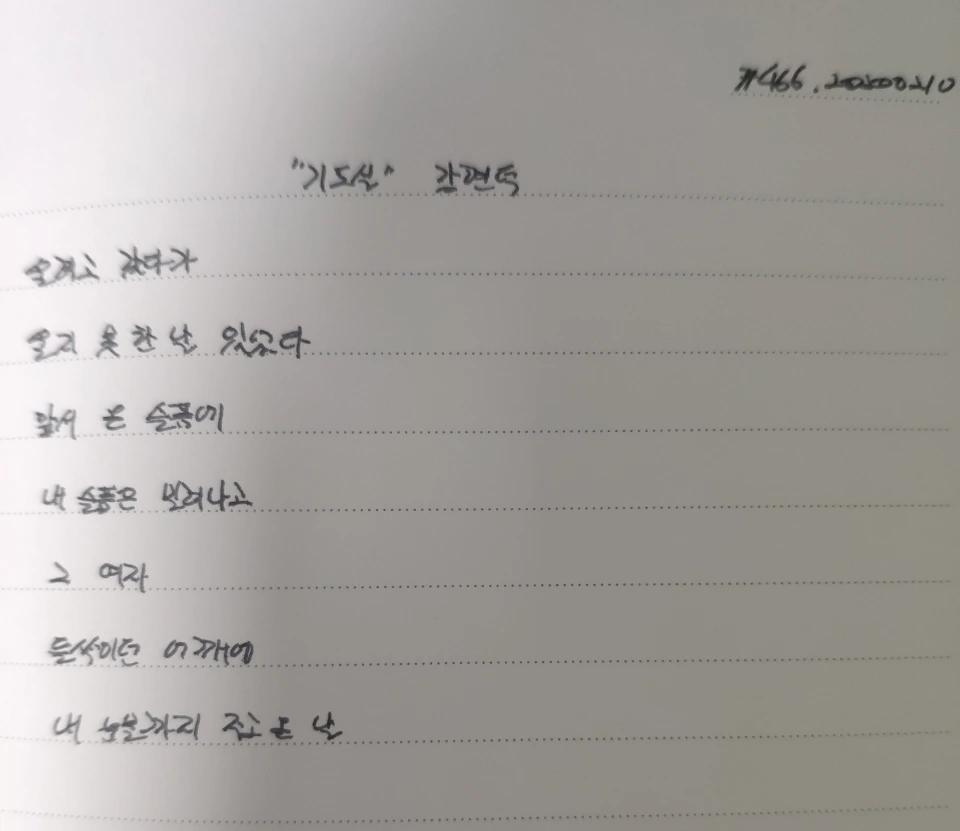 #466. 20200210
"기도실" 강현덕
울려고 갔다가
울지 못한 날 있었다
앞서 온 슬픔에
내 슬픔은 밀려나고
그 여자
들썩이던 어깨에
내 눈물까지 주고 온 날